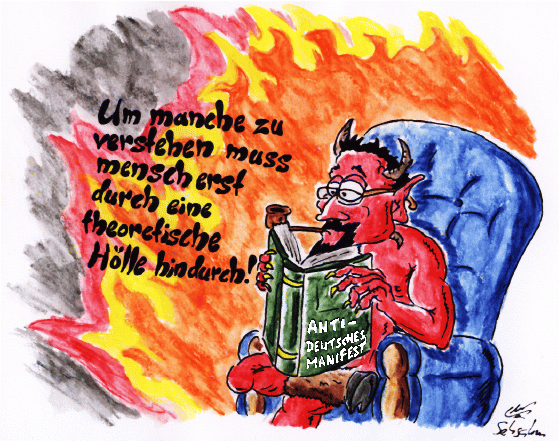 Um manche zu
verstehen muss
mensch erst
durch eine
theoretische
Hölle hindurch!
ANTI-
DEUTSCHES
MANIFEST